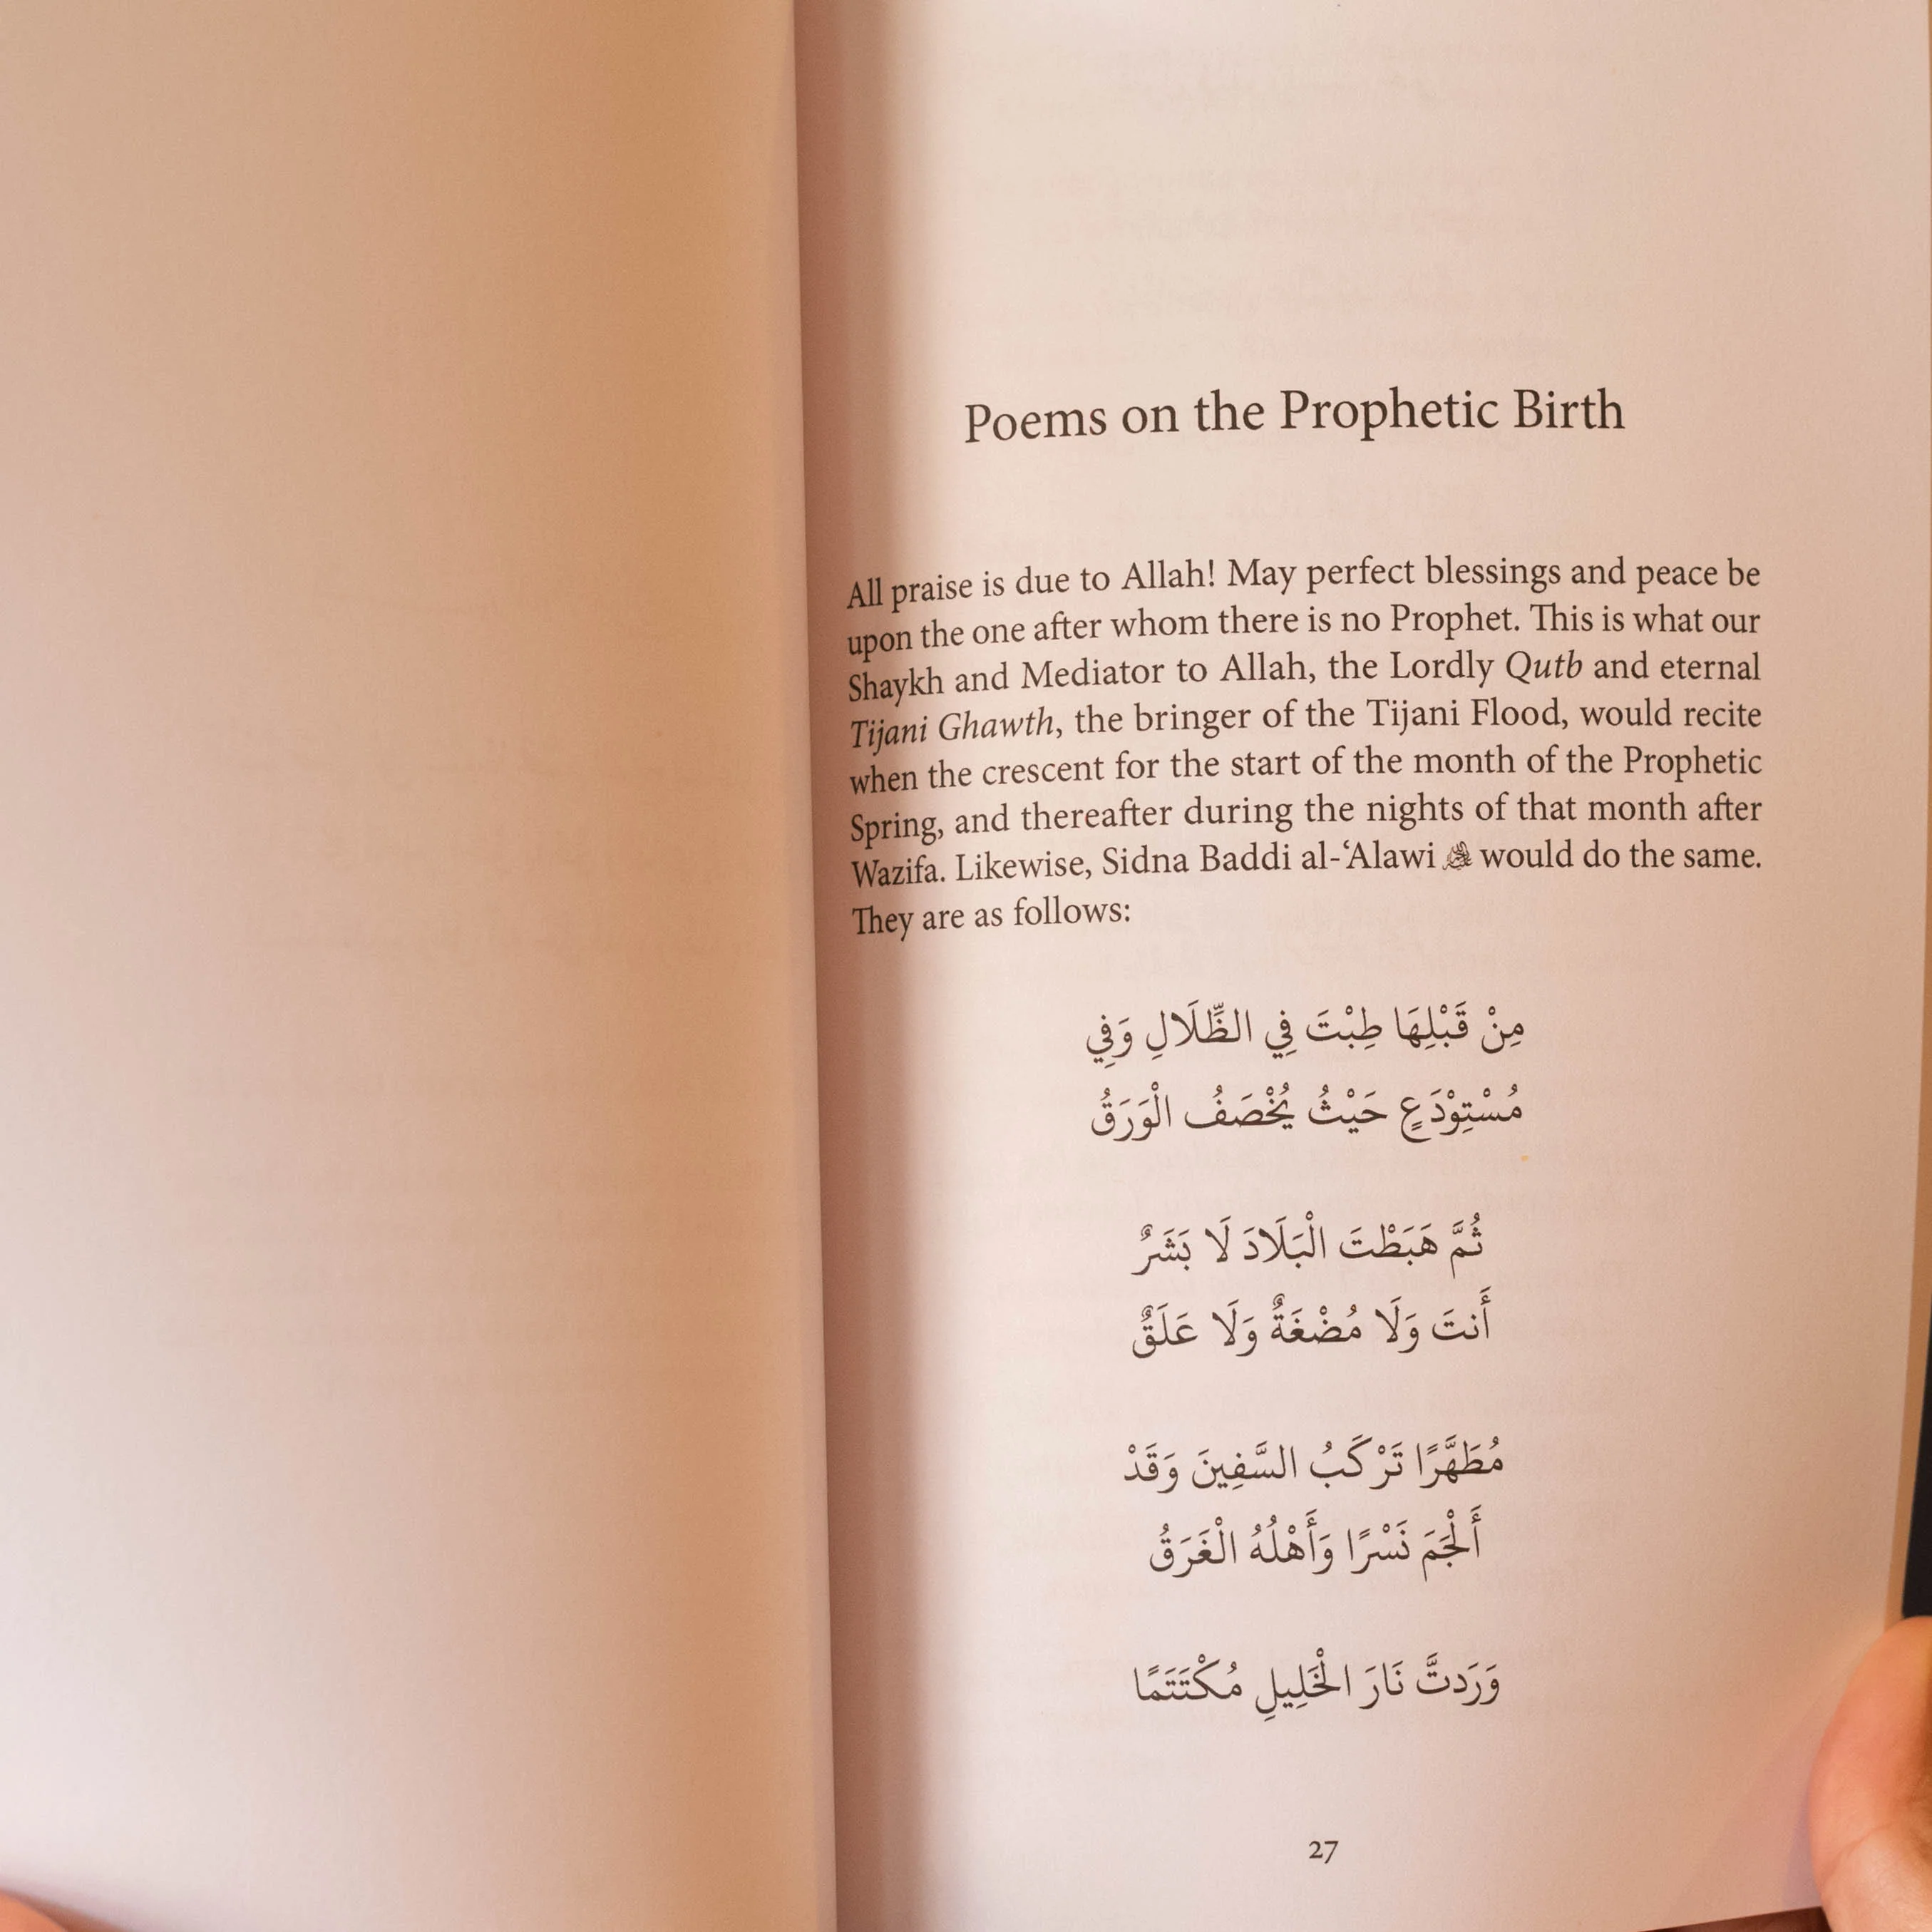 Poems on the Prophetic Birth
All praise is due to Allah! May perfect blessings and peace be
upon the one after whom there is no Prophet. This is what our
Shaykh and Mediator to Allah, the Lordly Qutb and eternal
Tijani Ghawth, the bringer of the Tijani Flood, would recite
when the crescent for the start of the month of the Prophetic
Spring, and thereafter during the nights of that month after
Wazifa. Likewise, Sidna Baddi al-‘Alawi would do the same.
They are as follows:
مِنْ قَبْلِهَا طِبْتَ فِي الظِّلَالِ وَفِي
مُسْتِوْدَعٍ حَيْثُ يُخْصَفُ الْوَرَقُ
ثُمَّ هَبَطْتَ الْبَلَادَ لَا بَشَرٌ
أَنتَ وَلَا مُضْغَةٌ وَلَا عَلَقٌ
مُطَهَّرًا تَرْكَبُ السَّفِينَ وَقَدْ
أَلْجَمَ نَسْرًا وَأَهْلُهُ الْغَرَقُ
وَرَدتَّ نَارَ الْخَلِيلِ مُكْتَتَمًا
27